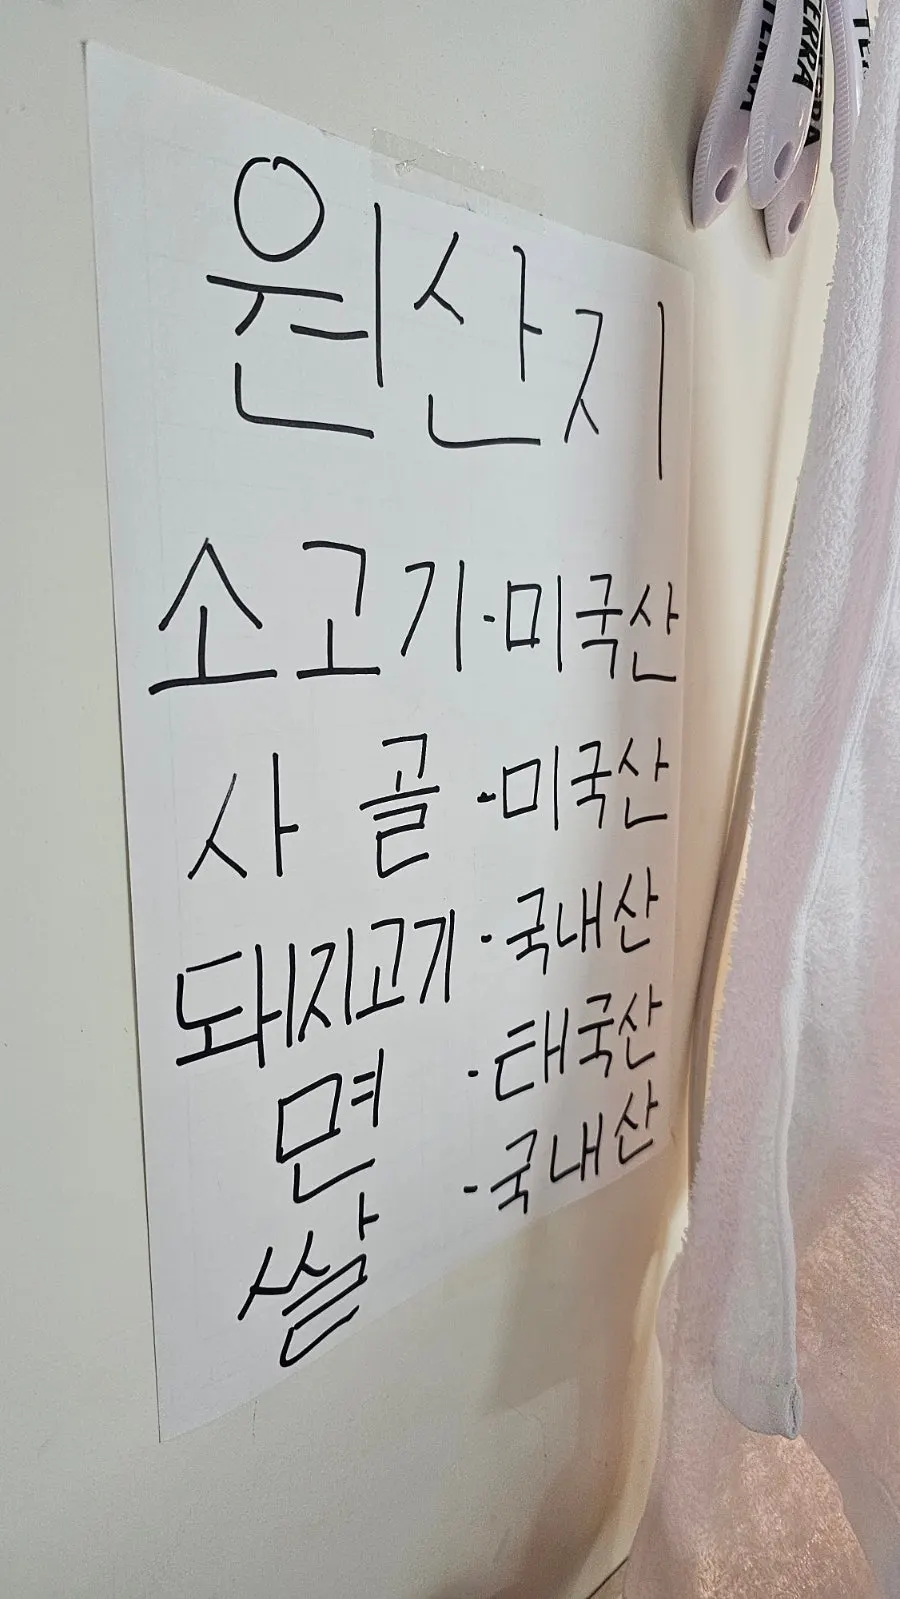 원산지
소고기·미국산
사골 - 미국산
돼지고기·국내산
면 · 태국산
쌀 - 국내산
TERRA
TERRA